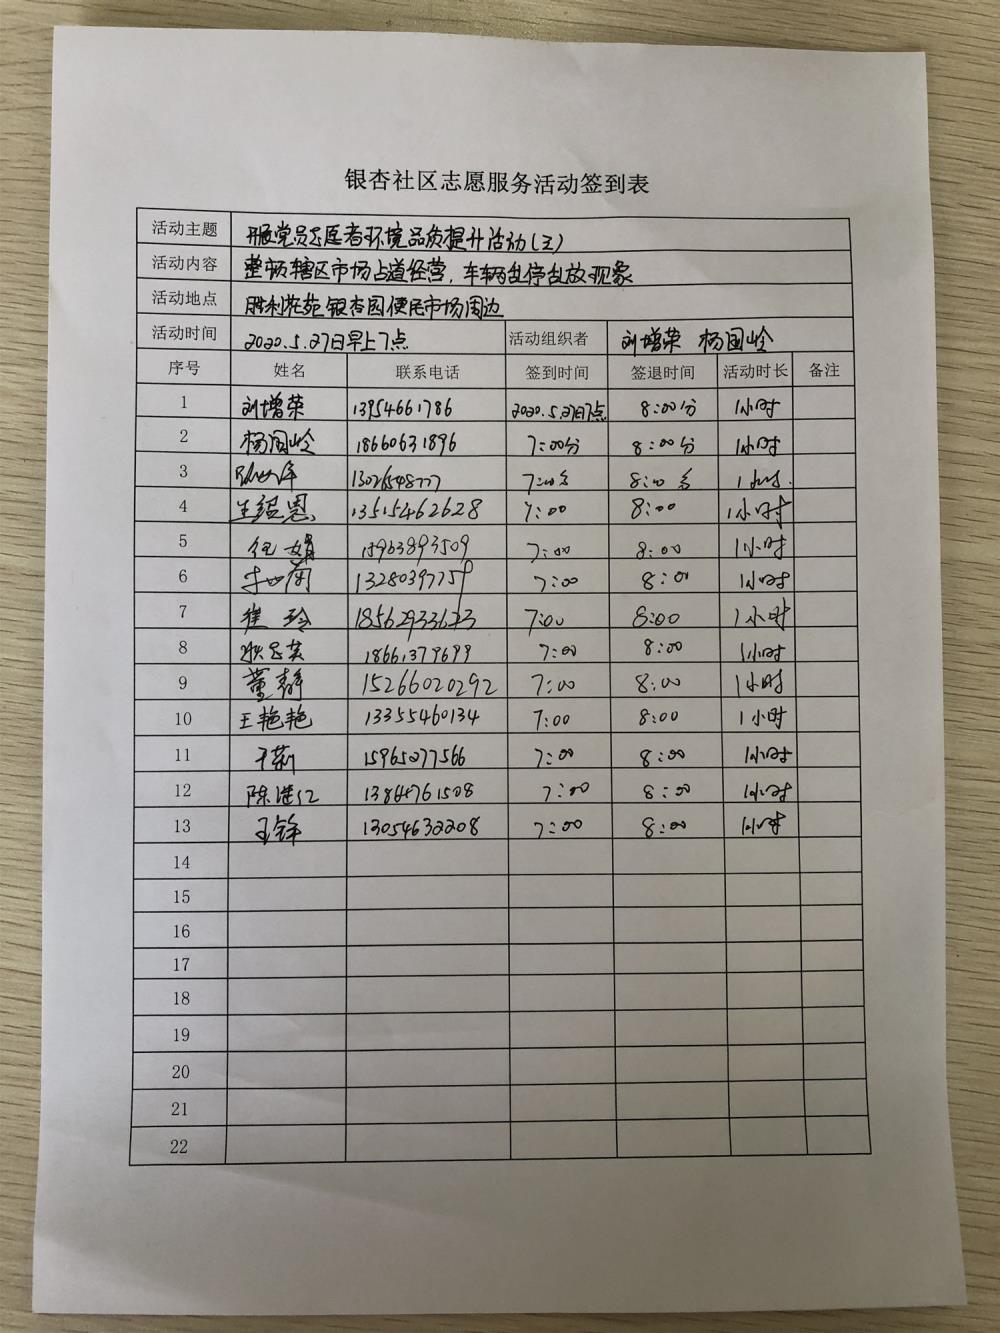 银杏社区志愿服务活动签到表
活动主题 开展党员志愿者环境品质提升活动(三)
活动内容 整顿辖区市场占道经营，车辆乱停乱放现象
活动地点 胜利花苑银杏园便民市场周边
活动时间 2020.5.27日早上7点 活动组织者 刘增荣 杨国岭
序号 姓名 联系电话 签到时间 签退时间 活动时长 备注
1 刘增荣 13954661786 2020.5.27日7点 8:00分 1小时
2 杨国岭 18660631896 7:00分 8:00分 1小时
3 7:00分 8:00分 1小时.
4 13515462628 7:00 8:00 1小时
5 任娟 15963893509 7:00 8:00 1小时
6 13280397759 7:00 8:00 1小时
7 崔玲 18562933623 7:00 8:00 1小时
8 18661379699 7:00 8:00 1小时
9 董静 15266020292 7:00 8:00 1小时
10 王艳艳 13355460134 7:00 8:00 1小时
11 于莉 15965077566 7:00 8:00 1小时
12 7:00 8:00 1小时
13 王锋 13054632208 7:00 8:00 1小时
14
15
16
17
18
19
20
21
22